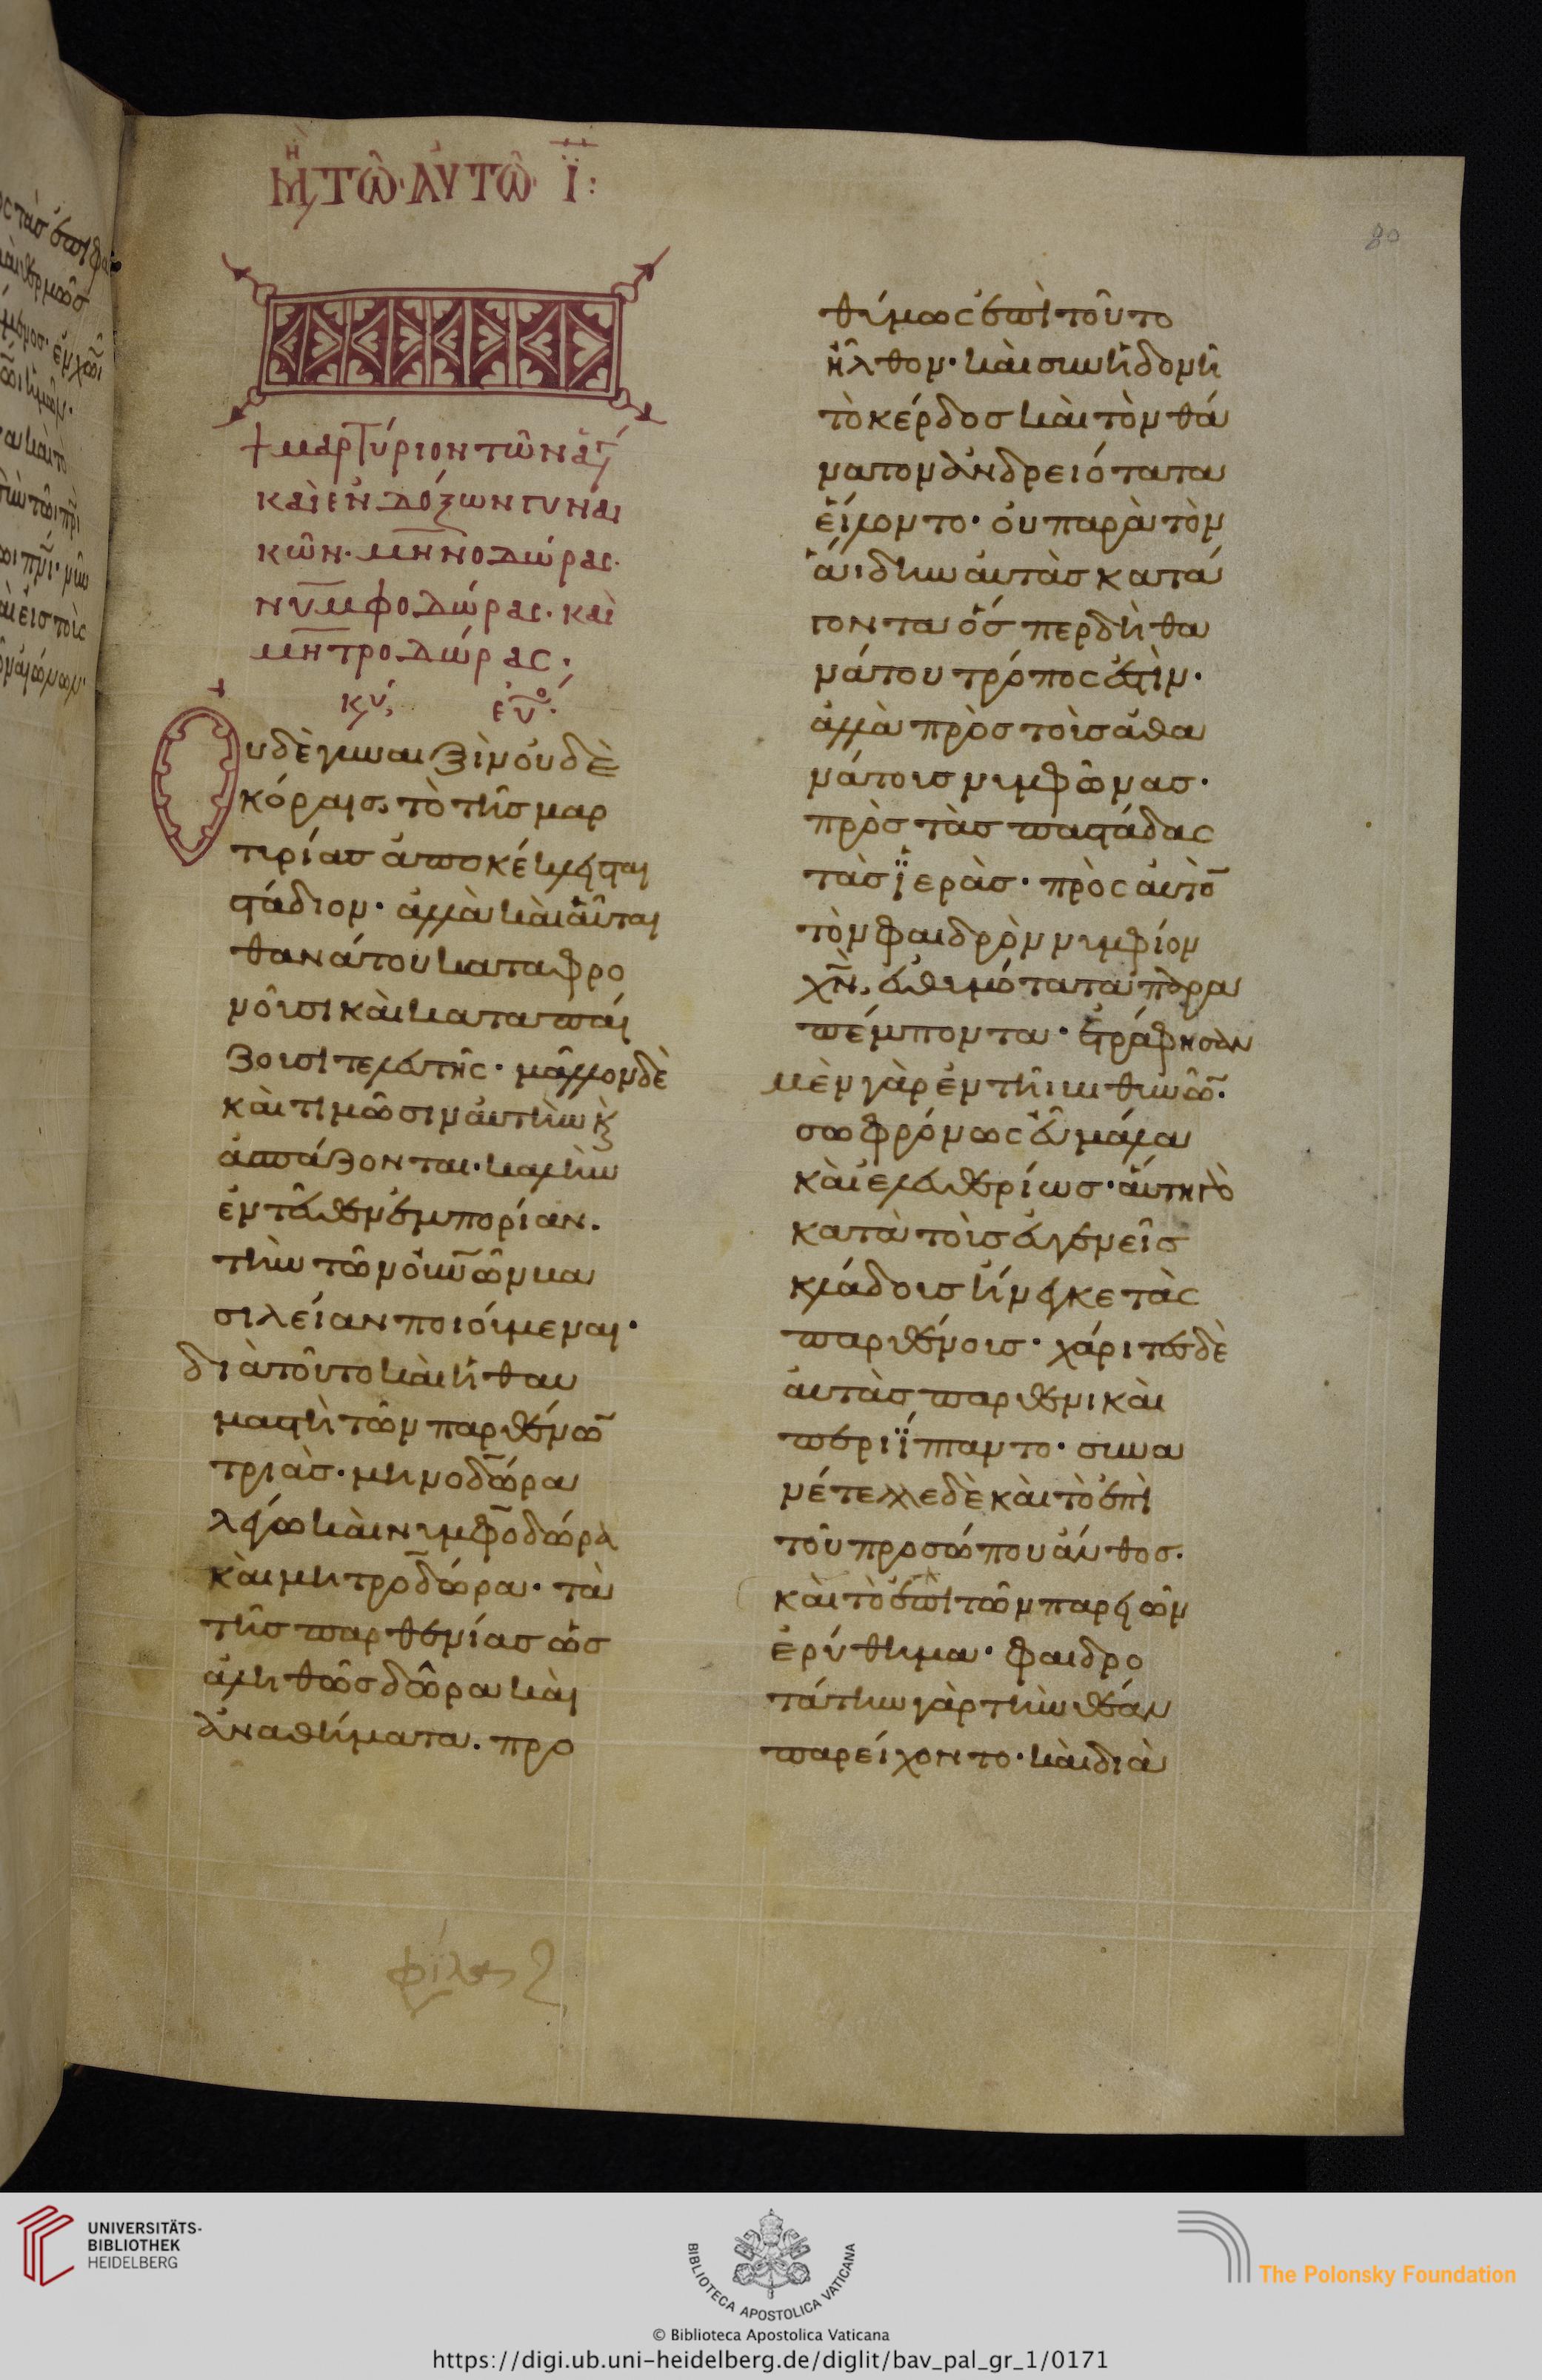 Μη τῶ αὐτῶ ϊ:
80
+ μαρτύριον τῶν ἁγ
καὶ ἐνδόξων γυναι
κῶν· μηνοδώρας·
νυμφοδώρας· καὶ
μητροδώρας·
κύ, εὐ
Οὐδὲ γυναιξὶν οὐδὲ
κόραις, τὸ τῆς μαρ
τυρίας ἀποκέκλεισται
στάδιον· ἀλλὰ καὶ αὗται
θανάτου καταφρο
νοῦσι καὶ καταπαί
ζουσι τελευτῆς· μᾶλλον δὲ
καὶ τιμῶσιν αὐτὴν κ
ἀσπάζονται· καλὴν
ἐντεῦθεν ἐμπορίαν.
τὴν τῶν οὐνῶν βα
σιλείαν ποιούμεναι·
διὰ τοῦτο καὶ ἡ θαυ
μαστὴ τῶν παρθένω
τριὰς· μηνοδώρα
λέγω καὶ νυμφοδώρα
καὶ μητροδώρα· τὰ
τῆς παρθενίας ὡς
ἀληθῶς δῶρα καὶ
ἀναθήματα. προ
θύμως ἐπὶ τοῦτο
ἦλθον· καὶ σπουδῇ
τὸ κέρδος καὶ τὸν θά
νατον ἀνδρειότατα
εἵλοντο· οὐ παρὰ τὸν
ἅιδην αὐτὰς κατά
γοντα ὅσπερ δὴ θα
νάτου τρόπος ἐστὶν·
ἀλλὰ πρὸς τοὺς ἀθα
νάτους νυμφῶνας·
πρὸς τὰς παστάδας
τὰς ϊεράς· πρὸς αὐτὸ
τὸν φαιδρὸν νυμφίον
χν, εὐθυμότατα παρα
πέμποντα· ἐτράφησαν
μὲν γὰρ ἐν τῇ βιθυνῶ·
σωφρόνως εὖ μάλα
καὶ ἐλευθερίως· αὕτη γὸ
κατὰ τοὺς εὐγενεῖς
κλάδους ἤνεγκε τὰς
παρθένους· χάριτες δὲ
αὐτὰς παρθενικαὶ
περιΐπταντο· συνα
νέτελλε δὲ καὶ τὸ ἐπὶ
τοῦ προσώπου ἄνθος.
καὶ τὸ ἐπὶ τῶν παρειῶν
ἐρύθημα· φαιδρο
τάτην γὰρ τὴν θέαν
παρείχοντο· καὶ διὰ
UNIVERSITÄTS-
BIBLIOTHEK
HEIDELBERG
BIBLIOTECA APOSTOLICA VATICANA
The Polonsky Foundation
© Biblioteca Apostolica Vaticana
https://digi.ub.uni-heidelberg.de/diglit/bav_pal_gr_1/0171